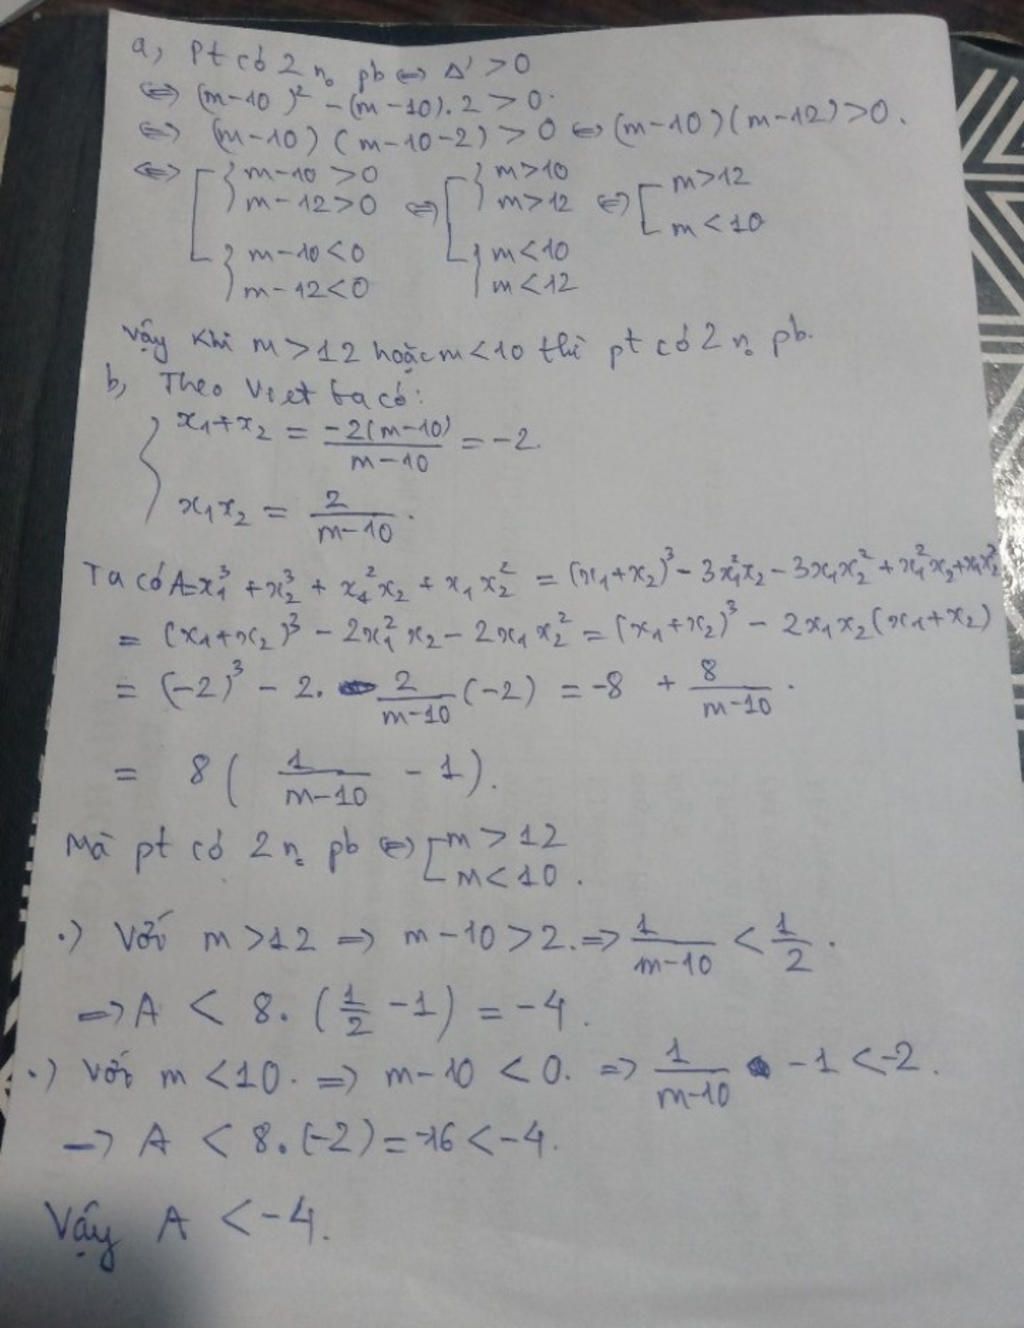 a, Pt có 2 n₀ pb ⇔ Δ' > 0
⇔ (m-10)² - (m-10).2 > 0.
⇔ (m-10)(m-10-2) > 0 ⇔ (m-10)(m-12) > 0.
⇔ [ { m-10 > 0 m-12 > 0 { m-10 < 0 m-12 < 0 ⇔ [ { m > 10 m > 12 { m < 10 m < 12 ⇔ [ m > 12 m < 10
Vậy khi m > 12 hoặc m < 10 thì pt có 2 n₀ pb.
b, Theo Viet ta có:
{ x₁+x₂ = -2(m-10)/m-10 = -2.
x₁x₂ = 2/m-10.
Ta có A = x₁³ + x₂³ + x₁²x₂ + x₁x₂² = (x₁+x₂)³ - 3x₁²x₂ - 3x₁x₂² + x₁²x₂ + x₁x₂²
= (x₁+x₂)³ - 2x₁²x₂ - 2x₁x₂² = (x₁+x₂)³ - 2x₁x₂(x₁+x₂)
= (-2)³ - 2. 2/m-10 (-2) = -8 + 8/m-10.
= 8( 1/m-10 - 1).
Mà pt có 2 n₀ pb ⇔ [ m > 12 m < 10.
.) Với m > 12 => m-10 > 2. => 1/m-10 < 1/2.
=> A < 8.(1/2 - 1) = -4.
.) Với m < 10. => m-10 < 0. => 1/m-10 - 1 < -2.
=> A < 8.(-2) = -16 < -4.
Vậy A < -4.